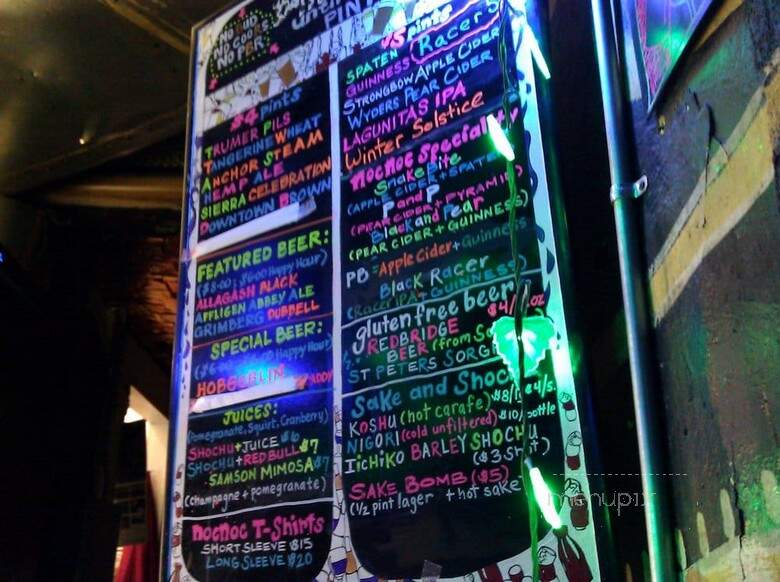 NO I.D
NO GOOD
PINTS
$4 pints
TRUMER PILS
TANGERINE WHEAT
ANCHOR STEAM
HEMP ALE
SIERRA CELEBRATION
DOWNTOWN BROWN
FEATURED BEER:
($8.00 : $6.00 Happy Hour)
ALLAGASH BLACK
AFFLIGEN ABBEY ALE
GRIMBERG DUBBELL
SPECIAL BEER:
Happy Hour)
HOBGOBLIN
JUICES:
(Pomegranate, Squirt, Cranberry)
SHOCHU + JUICE $6
SHOCHU + RED BULL $7
SAMSON MIMOSA $7
(champagne + pomegranate)
nocnoc T-Shirts
SHORT SLEEVE $15
LONG SLEEVE $20
$5 pints
SPATEN
GUINNESS Racer 5
STRONGBOW APPLE CIDER
WYDERS PEAR CIDER
LAGUNITAS IPA
Winter Solstice
nocnoc speciality
SnaKeBite
(APPLE CIDER + SPATEN
P and P
(PEAR CIDER + PYRAMID
Black and Pear
(PEAR CIDER + GUINNESS)
PB = Apple Cider + Guinness
BLACK RACER
(Racer IPA + GUINNESS)
gluten free beer
REDBRIDGE
BEER (from
ST PETERS SORG
Sake and Shoc
KOSHU (hot carafe) $8/
NIGORI (cold unfiltered) $10/bottle
IiCHiKO BARLEY SHOCHU
($3 Shot)
SAKE BOMB ($5)
(1/2 pint lager + hot sake)
menupix